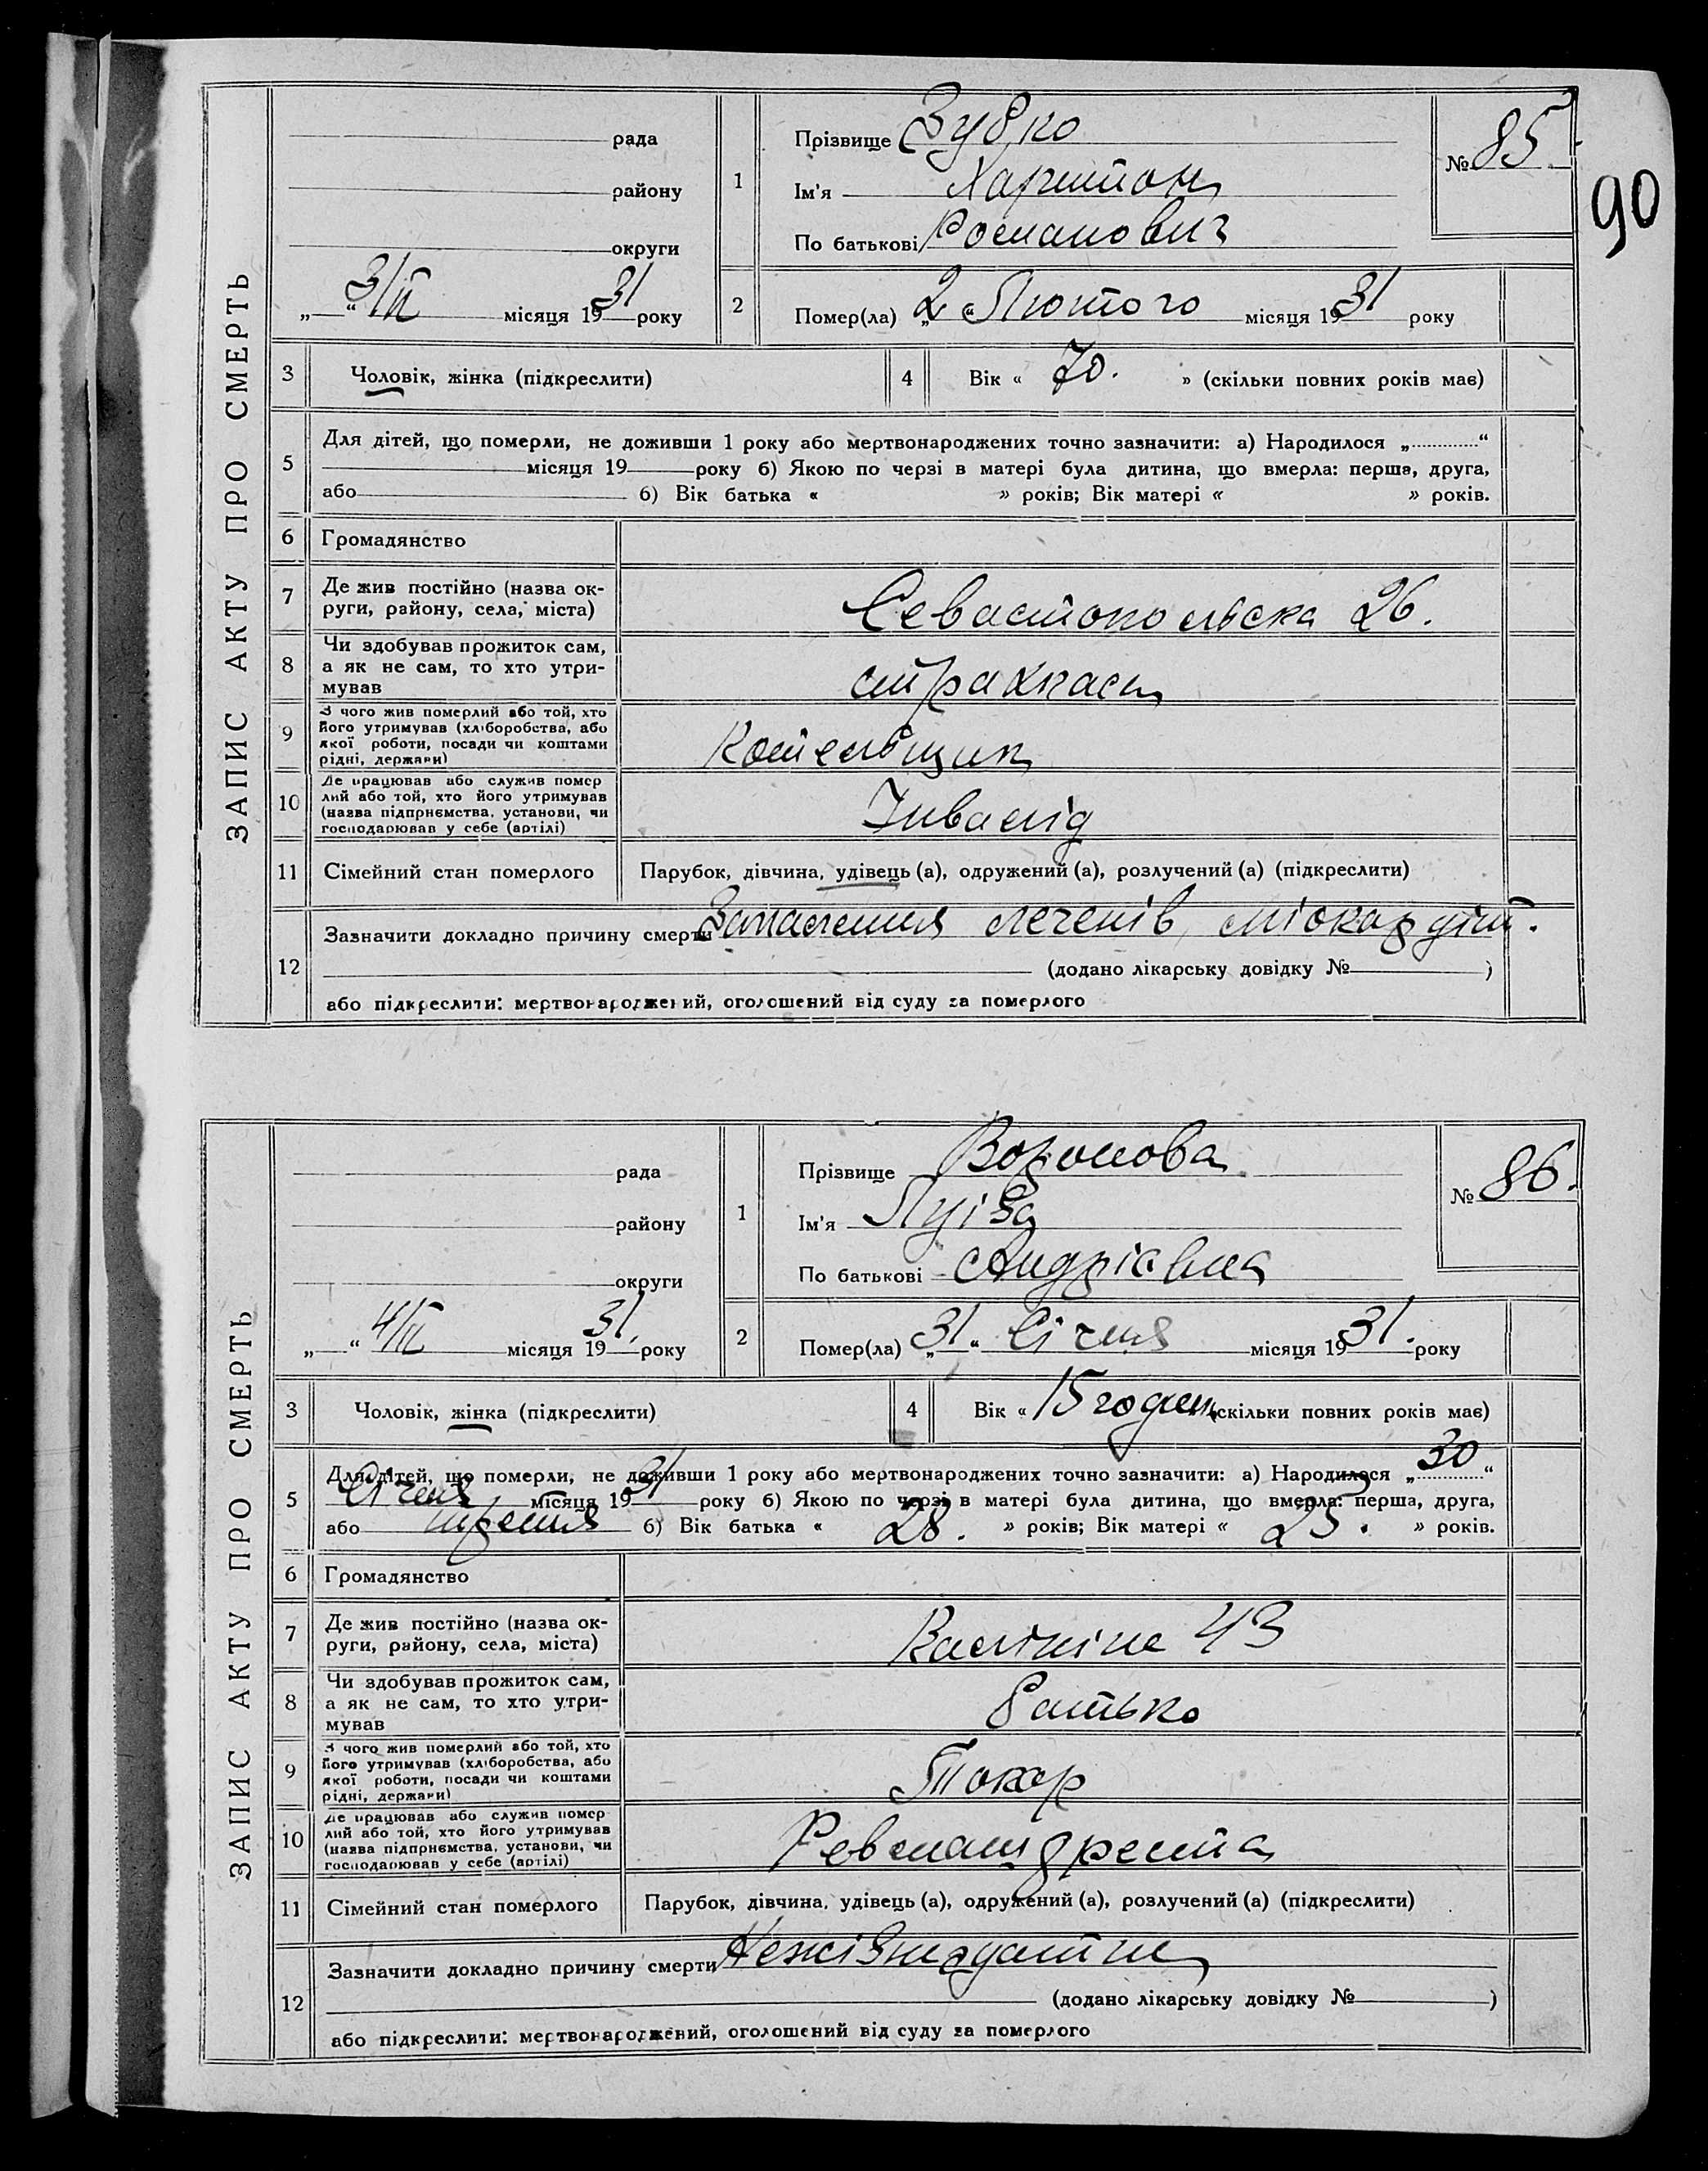 90
ЗАПИС АКТУ ПРО СМЕРТЬ
рада
району
округи
„ “ 3/II місяця 1931 року
1
Прізвище Зубко
Ім'я Харитон
По батькові Романович
№ 85.
2
Помер(ла) „2“ Лютого місяця 1931 року
3
Чоловік, жінка (підкреслити)
4
Вік « 70. » (скільки повних років має)
5
Для дітей, що померли, не доживши 1 року або мертвонароджених точно зазначити: а) Народилося „ “
місяця 19 року б) Якою по черзі в матері була дитина, що вмерла: перша, друга,
або б) Вік батька « » років; Вік матері « » років.
6
Громадянство
7
Де жив постійно (назва ок-
руги, району, села, міста)
Севастопольска 26.
8
Чи здобував прожиток сам,
а як не сам, то хто утри-
мував
страхкаси
9
З чого жив померлий або той, хто
його утримував (хліборобства, або
якої роботи, посади чи коштами
рідні, держави)
Котельщик
10
Де працював або служив помер
лий або той, хто його утримував
(назва підприємства, установи, чи
господарював у себе (артілі)
Інвалід
11
Сімейний стан померлого
Парубок, дівчина, удівець (а), одружений (а), розлучений (а) (підкреслити)
12
Зазначити докладно причину смерти Запалення легенів, міокардіт.
(додано лікарську довідку № )
або підкреслити: мертвонароджений, оголошений від суду за померлого
ЗАПИС АКТУ ПРО СМЕРТЬ
рада
району
округи
„ “ 4/II місяця 1931. року
1
Прізвище Воронова
Ім'я Луіза
По батькові Андріівна
№ 86.
2
Помер(ла) „31“ Січня місяця 1931. року
3
Чоловік, жінка (підкреслити)
4
Вік « 15 годин (скільки повних років має)
5
Для дітей, що померли, не доживши 1 року або мертвонароджених точно зазначити: а) Народилося „30“
Січня місяця 1931 року б) Якою по черзі в матері була дитина, що вмерла: перша, друга,
або третя б) Вік батька « 28. » років; Вік матері « 25. » років.
6
Громадянство
7
Де жив постійно (назва ок-
руги, району, села, міста)
Калініна 43
8
Чи здобував прожиток сам,
а як не сам, то хто утри-
мував
Батько
9
З чого жив померлий або той, хто
його утримував (хліборобства, або
якої роботи, посади чи коштами
рідні, держави)
Токар
10
Де працював або служив помер
лий або той, хто його утримував
(назва підприємства, установи, чи
господарював у себе (артілі)
11
Сімейний стан померлого
Парубок, дівчина, удівець (а), одружений (а), розлучений (а) (підкреслити)
12
Зазначити докладно причину смерти Нежізнєдатне
(додано лікарську довідку № )
або підкреслити: мертвонароджений, оголошений від суду за померлого